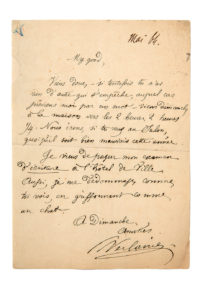 Mai 16.
My good,
Viens donc, — si toutefois tu n'as
rien d'autre qui t'empêche, auquel cas
préviens moi par un mot — viens dimanche
à la maison vers les 2 heures, 2 heures
1/2. Nous irons, si tu veux au Salon,
quoiqu'il soit bien mauvais cette année.
Je viens de passer mon examen
d'écriture à l'hôtel de Ville
Aussi, je me dédommage comme
tu vois, en griffonnant comme
un chat.
A Dimanche
Amitiés
Verlaine